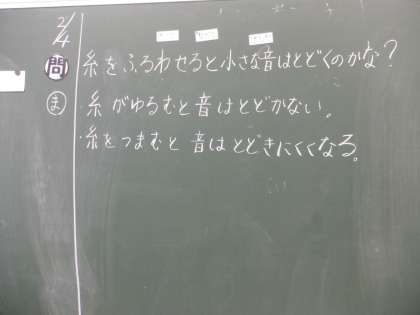 2/4
問 糸をふるわせると小さな音はとどくのかな?
ま ・糸がゆるむと音はとどかない。
・糸をつまむと音はとどきにくくなる。